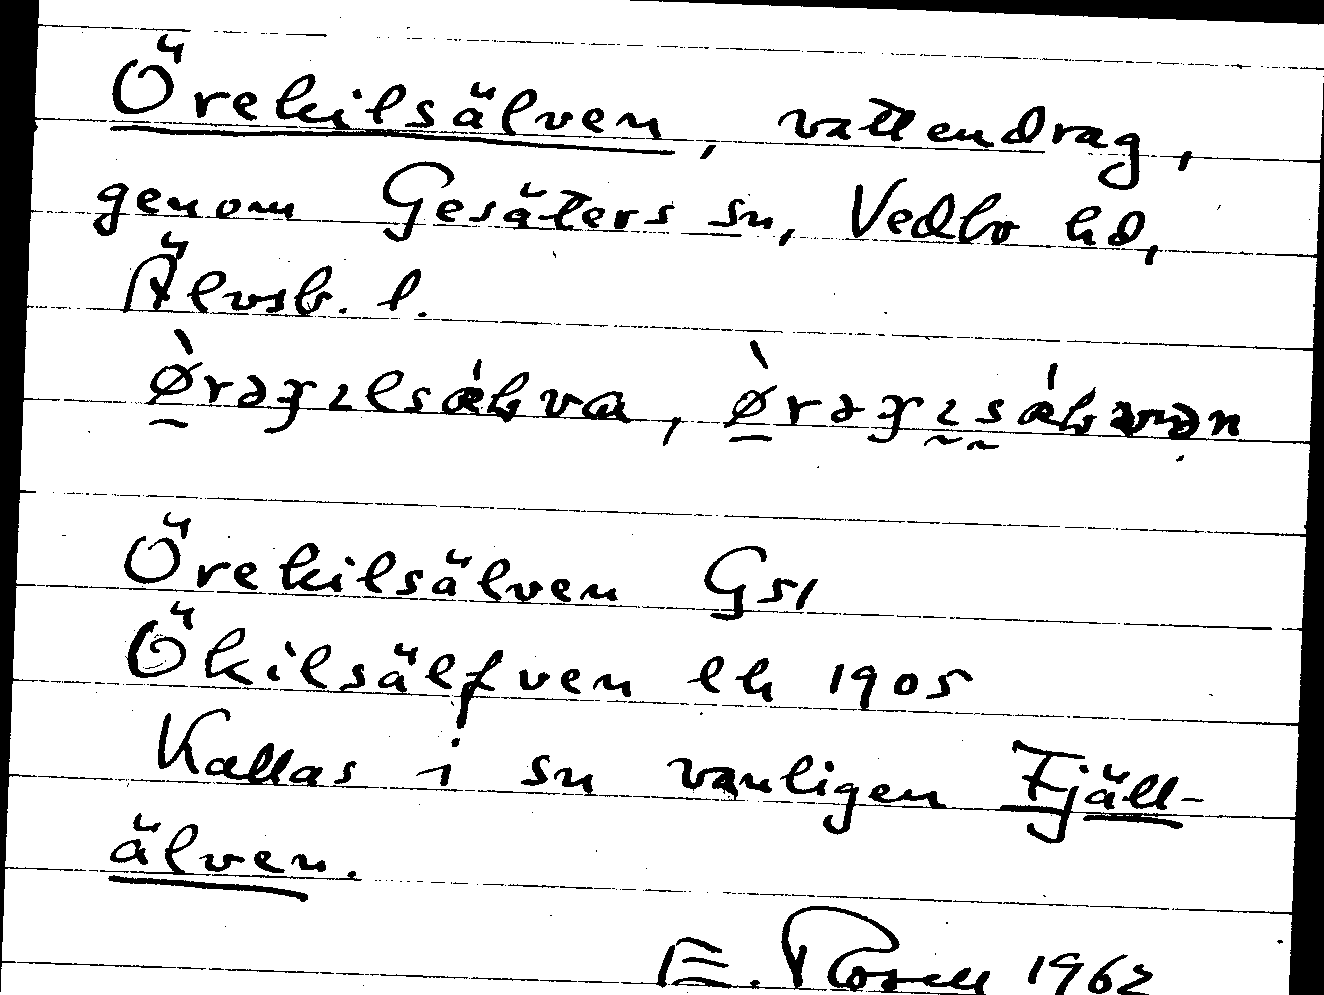 Örekilsälven, vattendrag,
genom Gesäters sn, Vedbo hd,
Älvsb. l.
Örekilsälven Gs1
Ökilsälfven ek 1905
Kallas i sn vanligen Fjäll-
älven.
E. Rosell 1962